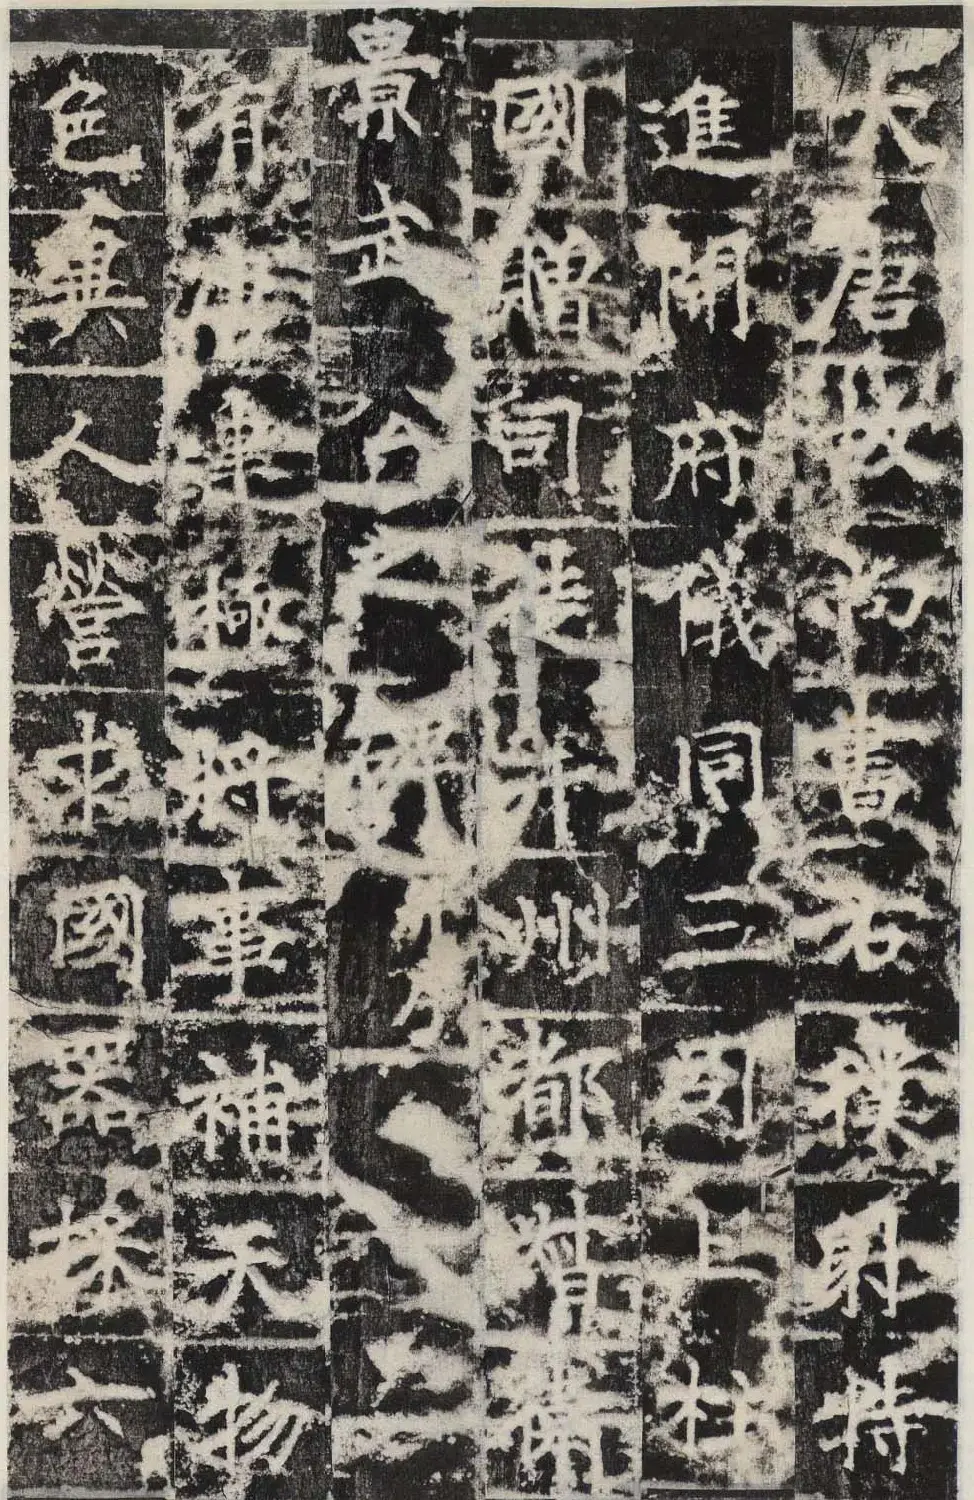 大唐故尚書右僕射特
進開府儀同三司上柱
國贈司徒并州都督衛
景武公之碑
有極將事補天物
色異人營求國器採六